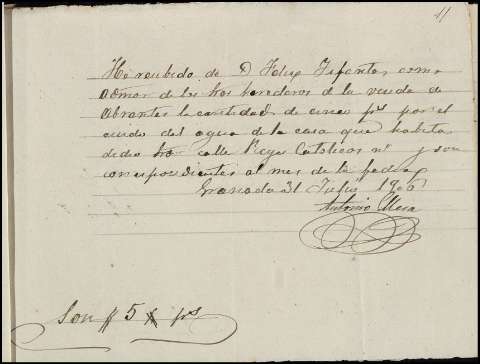 11
He recibido de D Felix Infantes como
admor de los hros herederos de la viuda de
Abrantes la cantidad de cinco pts por el
cuido del agua de la casa que habita
dicho calle Reyes Catolicos nº y son
correspondientes al mes de la fecha
Granada 31 Julio 1906
Antonio Mesa
Son # 5 pts